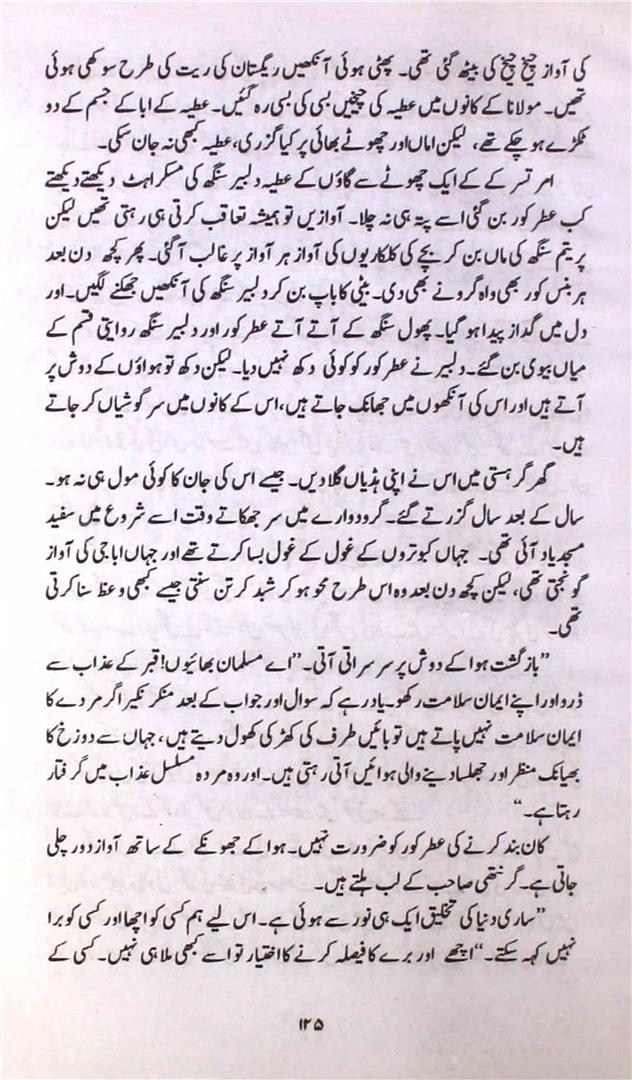 کی آواز چیخ چیخ کی بیٹھ گئی تھی۔ پھٹی ہوئی آنکھیں ریگستان کی ریت کی طرح سوکھی ہوئی
تھیں۔ مولانا کے کانوں میں عطیہ کی چیخیں بسی کی بسی رہ گئیں۔ عطیہ کے ابا کے جسم کے دو
ٹکڑے ہو چکے تھے، لیکن اماں اور چھوٹے بھائی پر کیا گزری، عطیہ کبھی نہ جان سکی۔
امرتسر کے کے ایک چھوٹے سے گاؤں کے عطیہ دلبیر سنگھ کی مسکراہٹ دیکھتے دیکھتے
کب عطر کور بن گئی اسے پتہ ہی نہ چلا۔ آوازیں تو ہمیشہ تعاقب کرتی ہی رہتی تھیں لیکن
پریتم سنگھ کی ماں بن کر بچے کی کلکاریوں کی آواز ہر آواز پر غالب آ گئی۔ پھر کچھ دن بعد
ہربنس کور بھی واہ گرو نے بھی دی۔ بیٹی کا باپ بن کر دلبیر سنگھ کی آنکھیں جھکنے لگیں۔ اور
دل میں گداز پیدا ہو گیا۔ پھول سنگھ کے آتے آتے عطر کور اور دلبیر سنگھ روایتی قسم کے
میاں بیوی بن گئے۔ دلبیر نے عطر کور کو کوئی دکھ نہیں دیا۔ لیکن دکھ تو ہواؤں کے دوش پر
آتے ہیں اور اس کی آنکھوں میں جھانک جاتے ہیں، اس کے کانوں میں سرگوشیاں کر جاتے
ہیں۔
گھر گرہستی میں اس نے اپنی ہڈیاں گلا دیں۔ جیسے اس کی جان کا کوئی مول ہی نہ ہو۔
سال کے بعد سال گزرتے گئے۔ گرودوارے میں سر جھکاتے وقت اسے شروع میں سفید
مسجد یاد آئی تھی۔ جہاں کبوتروں کے غول کے غول بسا کرتے تھے اور جہاں ابا جی کی آواز
گونجتی تھی، لیکن کچھ دن بعد وہ اس طرح محو ہو کر شبد کرتن سنتی جیسے کبھی وعظ سنا کرتی
تھی۔
”بازگشت ہوا کے دوش پر سرسراتی آتی۔“ اے مسلمان بھائیوں! قبر کے عذاب سے
ڈرو اور اپنے ایمان سلامت رکھو۔ یاد رہے کہ سوال اور جواب کے بعد منکر نکیر اگر مردے کا
ایمان سلامت نہیں پاتے ہیں تو بائیں طرف کی کھڑکی کھول دیتے ہیں، جہاں سے دوزخ کا
بھیانک منظر اور جھلسا دینے والی ہوائیں آتی رہتی ہیں۔ اور وہ مردہ مسلسل عذاب میں گرفتار
رہتا ہے۔“
کان بند کرنے کی عطر کور کو ضرورت نہیں۔ ہوا کے جھونکے کے ساتھ آواز دور چلی
جاتی ہے۔ گرنتھی صاحب کے لب ہلتے ہیں۔
”ساری دنیا کی تخلیق ایک ہی نور سے ہوئی ہے۔ اس لیے ہم کسی کو اچھا اور کسی کو برا
نہیں کہہ سکتے۔“ اچھے اور برے کا فیصلہ کرنے کا اختیار تو اسے کبھی ملا ہی نہیں۔ کسی کے
۱۲۵